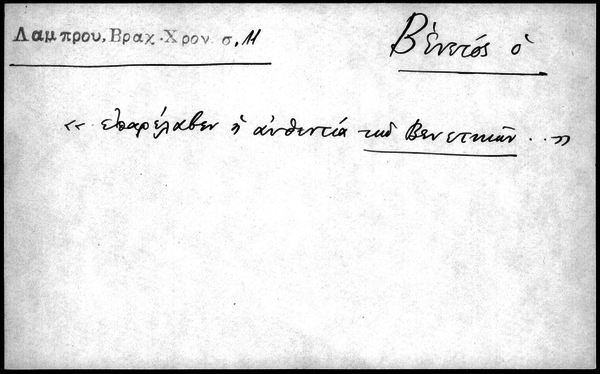 Λαμπρου, Βραχ. Χρον. σ. 11
Βένετός ὁ
« ἐπαρέλαβεν ἡ αὐθεντία τῶν Βενετικῶν ... »